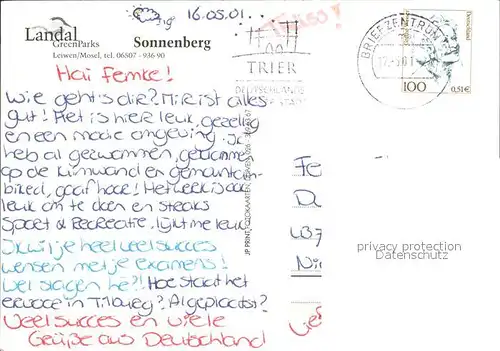 16.05.01
Landal
GreenParks
Sonnenberg
Leiwen/Mosel, tel. 06507 - 936 90
TRIER
DEUTSCHLANDS
BRIEFZENTRUM
Deutschland
100
0,51€
Hai Femke!
Wie geht's dir? Mir ist alles
gut! Het is hier leuk, gezellig
en een mooie omgeving. Ik
heb al gezwommen, geklommen
op de klimwand en gemountain-
biked, gaaf hoor! Het werk is ook
leuk om te doen en steaks
Sport & Recreatie, lijkt me leuk
Ik wil je heel veel succes
wensen met je examens!
Wel slagen hè?! Hoe staat het
ervoor in Tilburg? Al geplaatst?
Veel succes en viele
Grüße aus Deutschland
privacy protection
Datenschutz